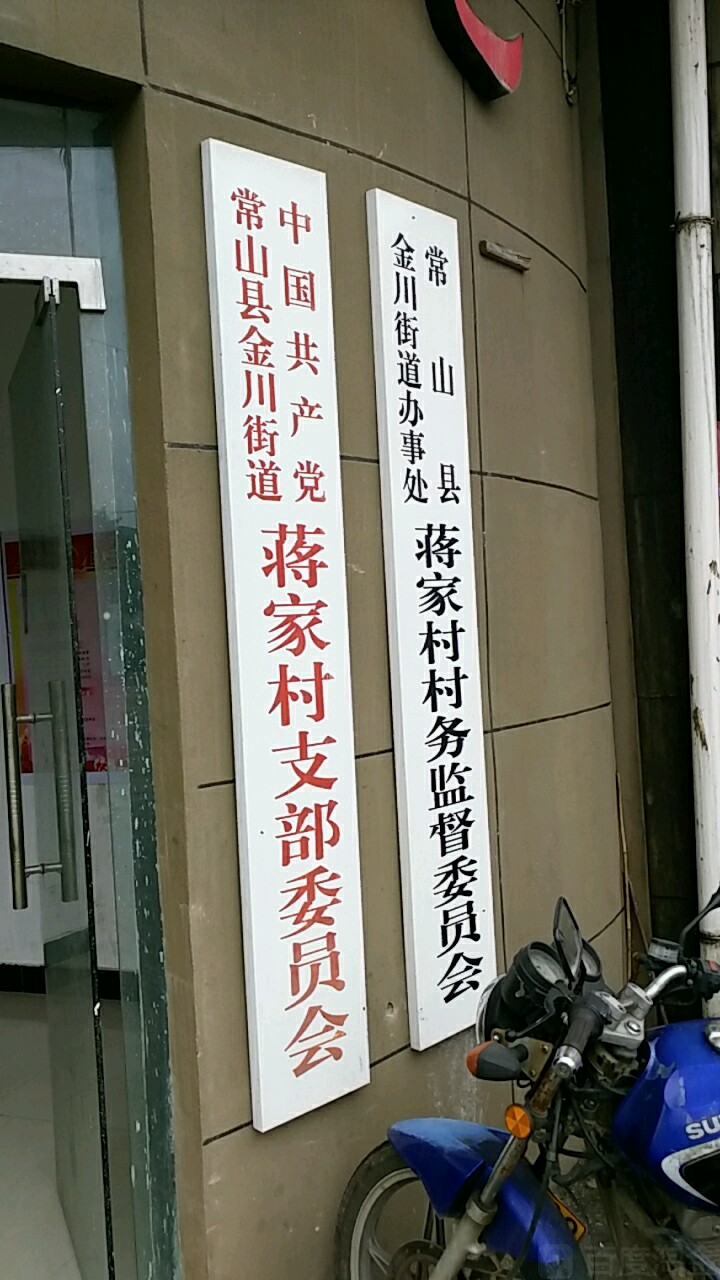 中国共产党
常山县金川街道
蒋家村支部委员会
常山县
金川街道办事处
蒋家村村务监督委员会
SU